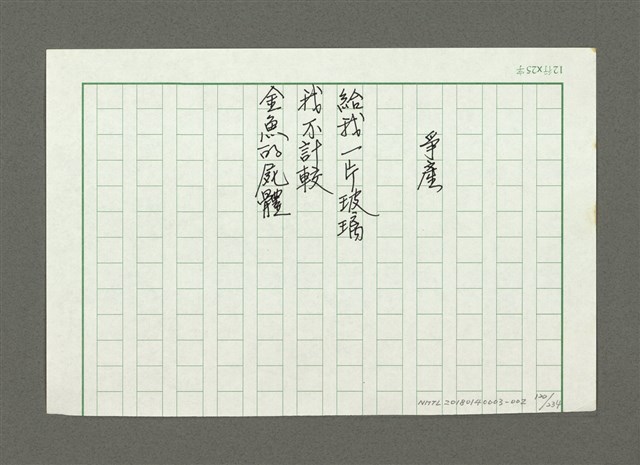 12行x25字
爭產
給我一片玻璃
我不計較
金魚的屍體
NMTL20180140003-002
120/234